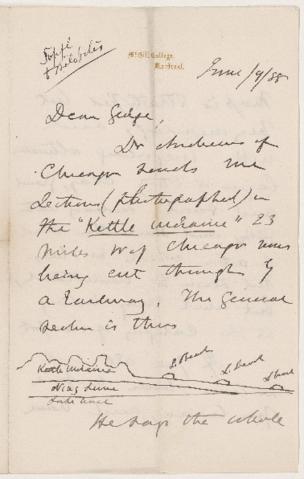 McGill College,
Montreal.
June /9/88
Dear George,
Dr Andrews of
Chicago sends me
sections (photographed) in
the "Kettle moraine" 23
miles W of Chicago now
being cut through by
a Railway. The General
section is thus
Kettle moraine
L. Beach
L. beach
L beach
Niag Lime
He says the whole